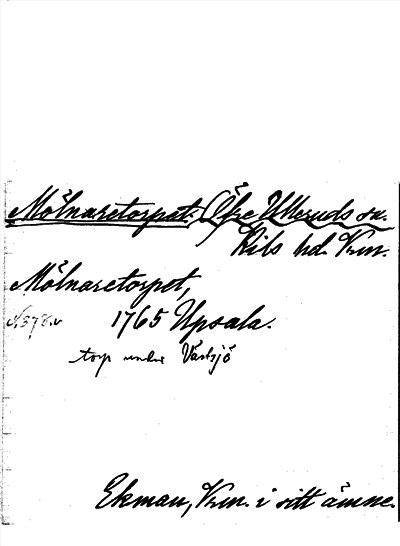 Mölnaretorpet. Öfre Ulleruds sn.
Kils hd. Vrm.
Mölnaretorpet,
1765 Upsala.
torp under
Ekman, Vrm. i sitt ämne.